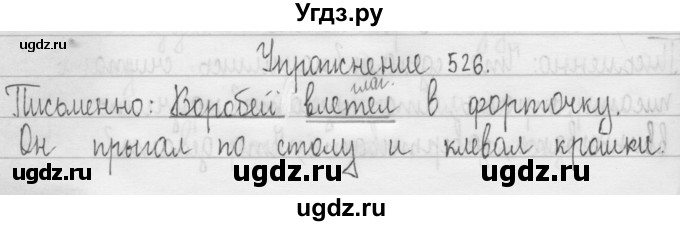 Угдз.ру
ugdz.ru ugdz.ru
Упражнение 526.
глаг.
Письменно: Воробей влетел в форточку.
ugdz.ru ugdz.ru
Он прыгал по столу и клевал крошки.
ugdz.ru ugdz.ru ugdz.ru
ugdz.ru